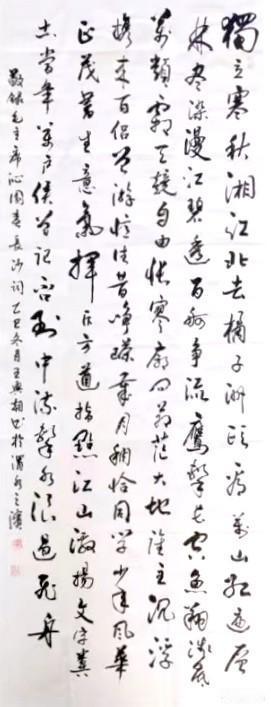 獨立寒秋湘江北去橘子洲頭看萬山紅遍層
林盡染漫江碧透百舸爭流鷹擊長空魚翔淺底
萬類霜天競自由悵寥廓問蒼茫大地誰主沉浮
攜來百侶曾游憶往昔崢嶸歲月稠恰同學少年風華
正茂書生意氣揮斥方遒指點江山激揚文字糞
土當年萬戶侯曾記否到中流擊水浪遏飛舟
敬録毛主席沁園春長沙詞乙巳冬月王興於渭水之濱